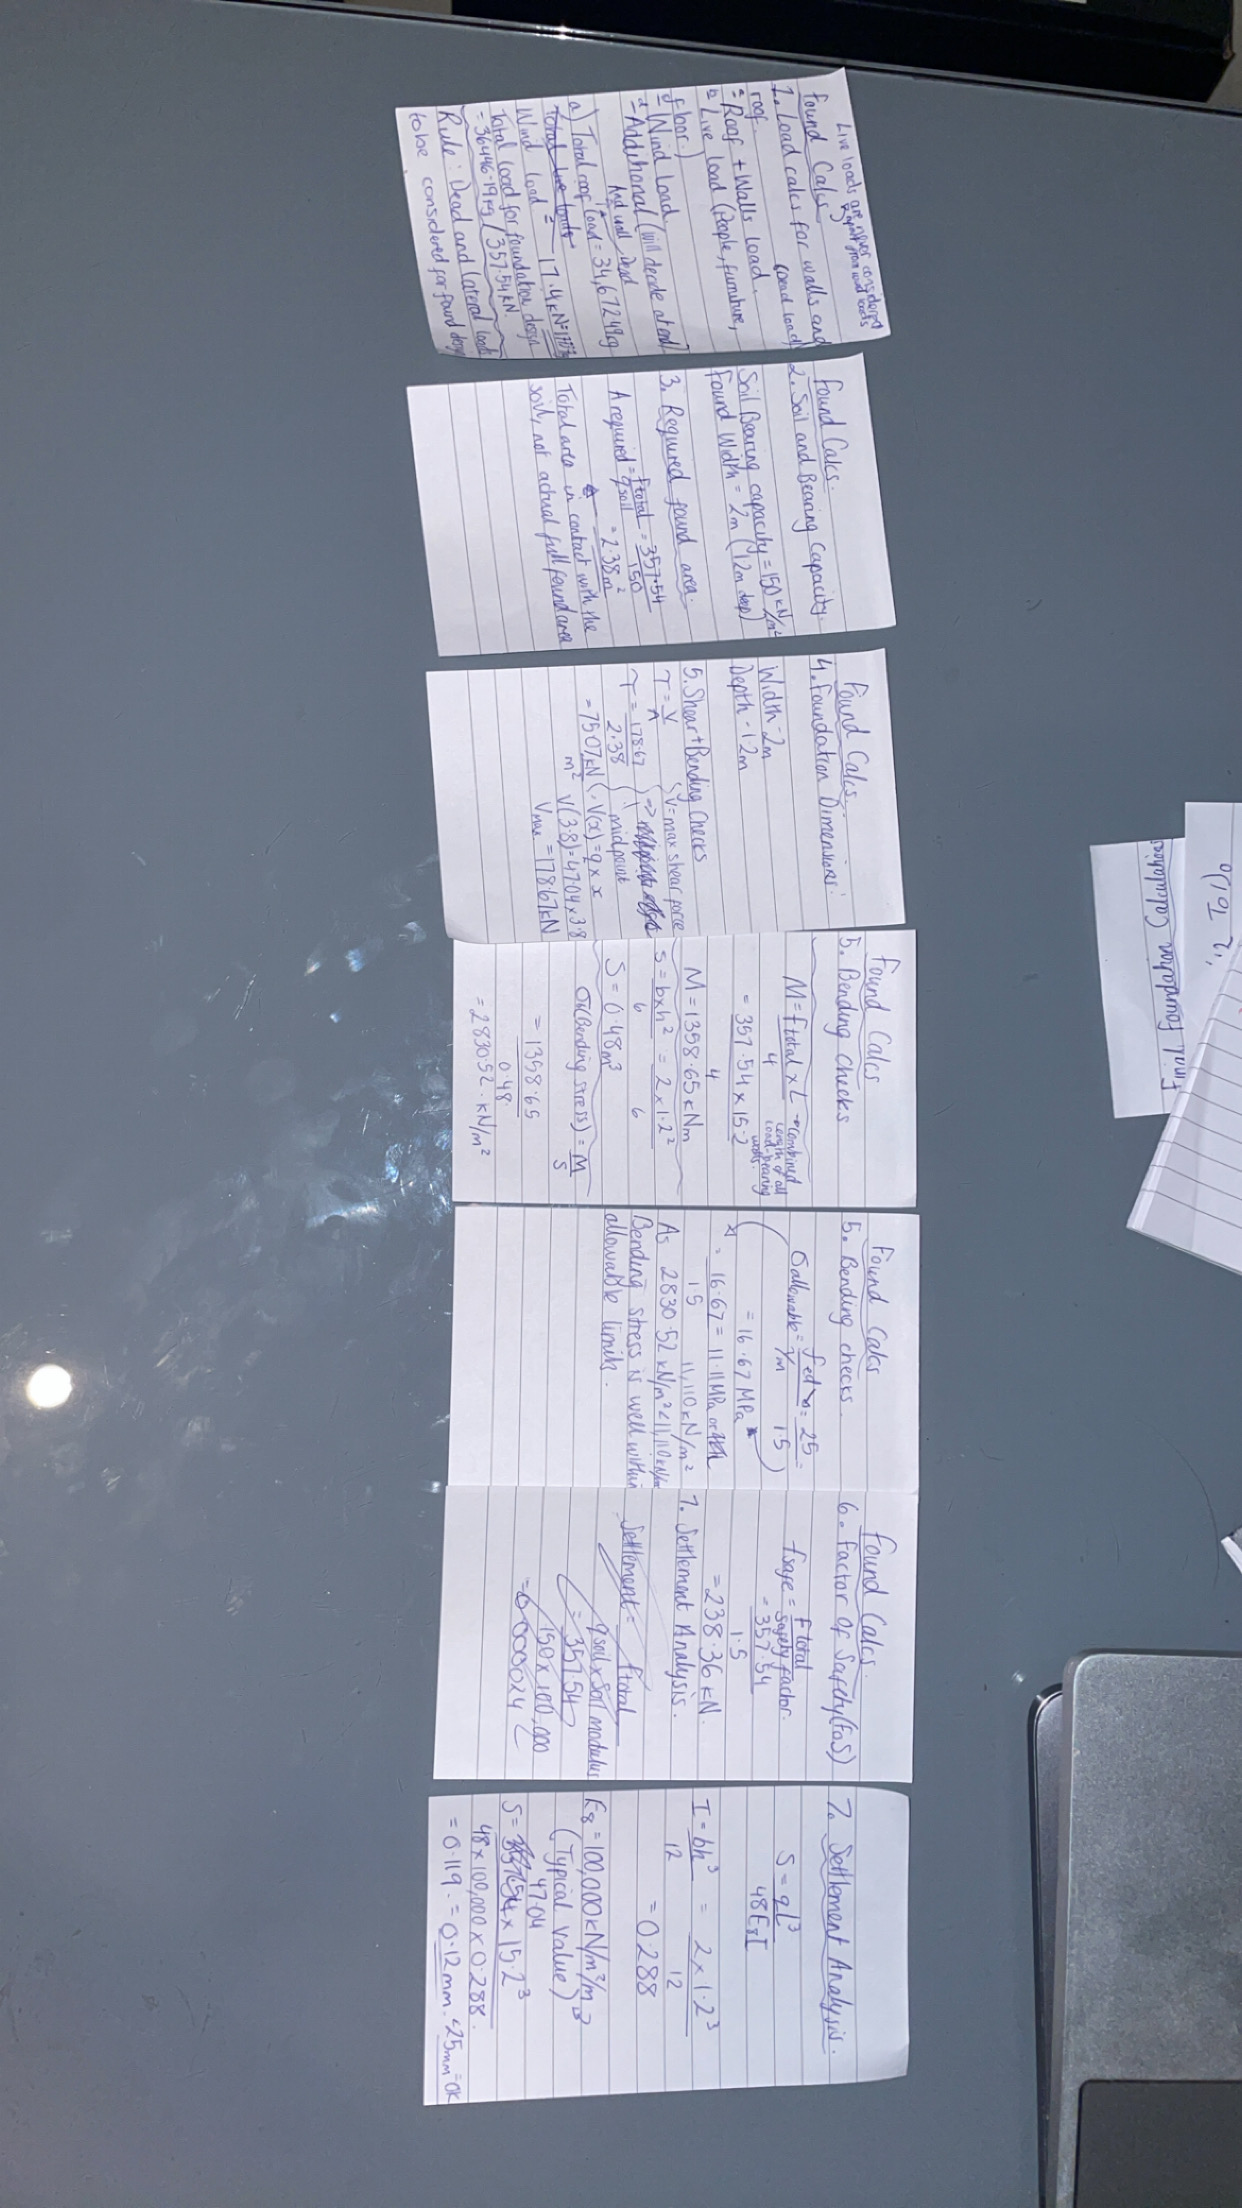 Live loads are never considered
apart from wind loads
Found Calcs
1. Load calcs for walls and
roof. (Dead load)
a Roof + Walls Load.
b Live load (People, furniture,
floor.)
c Wind Load.
d Additional (will decide at end)
And wall dead
a) Total roof load = 34,672.49kg
Total live loads
Wind load = 17.4kN =
Total load for foundation design
= 36446.19kg / 357.54kN.
Rule: Dead and lateral loads
to be considered for found design
Found Calcs.
2. Soil and Bearing Capacity.
Soil Bearing capacity = 150 kN/m²
Found Width = 2m (1.2m deep)
3. Required found area.
A required = Ftotal / qsoil = 357.54 / 150
= 2.38m²
Total area in contact with the
soil, not actual full found area
Found Calcs.
4. Foundation Dimensions:
Width - 2m
Depth - 1.2m
5. Shear + Bending Checks
T = V/A (V = max shear force
T = 178.67 / 2.38
midpoint
= 75.07 kN/m² (∴ V(x) = q × x
V(3.8) = 47.04 × 3.8
Vmax = 178.67kN
Found Calcs
5. Bending Checks
M = Ftotal × L / 4 → combined
length of all
load-bearing
walls.
= 357.54 × 15.2 / 4
M = 1358.65 kNm
S = b × h² / 6 = 2 × 1.2² / 6
S = 0.48m³
σb (Bending stress) = M / S
= 1358.65 / 0.48
= 2830.52 kN/m²
Found Calcs
5. Bending checks.
σallowable = fcd / γm = 25 / 1.5 =
= 16.67 MPa
= 16.67 / 1.5 = 11.11 MPa or
11,110 kN/m²
As 2830.52 kN/m² < 11,110 kN/m²
Bending stress is well within
allowable limits.
Found Calcs.
6. Factor Of Safety (FoS)
fsafe = Ftotal / Safety factor.
= 357.54 / 1.5
= 238.36 kN.
7. Settlement Analysis.
Settlement = ftotal / qsoil × Soil modulus
= 357.54 / 150 × 100,000
= 0.0000024
7. Settlement Analysis.
S = qL³ / 48EsI
I = bh³ / 12 = 2 × 1.2³ / 12
= 0.288
Es = 100,000 kN/m²/m
(Typical value)
47.04
S = 357.54 × 15.2³ / 48 × 100,000 × 0.288.
= 0.119. = 0.12mm. <25mm = OK
Final Foundation Calculations